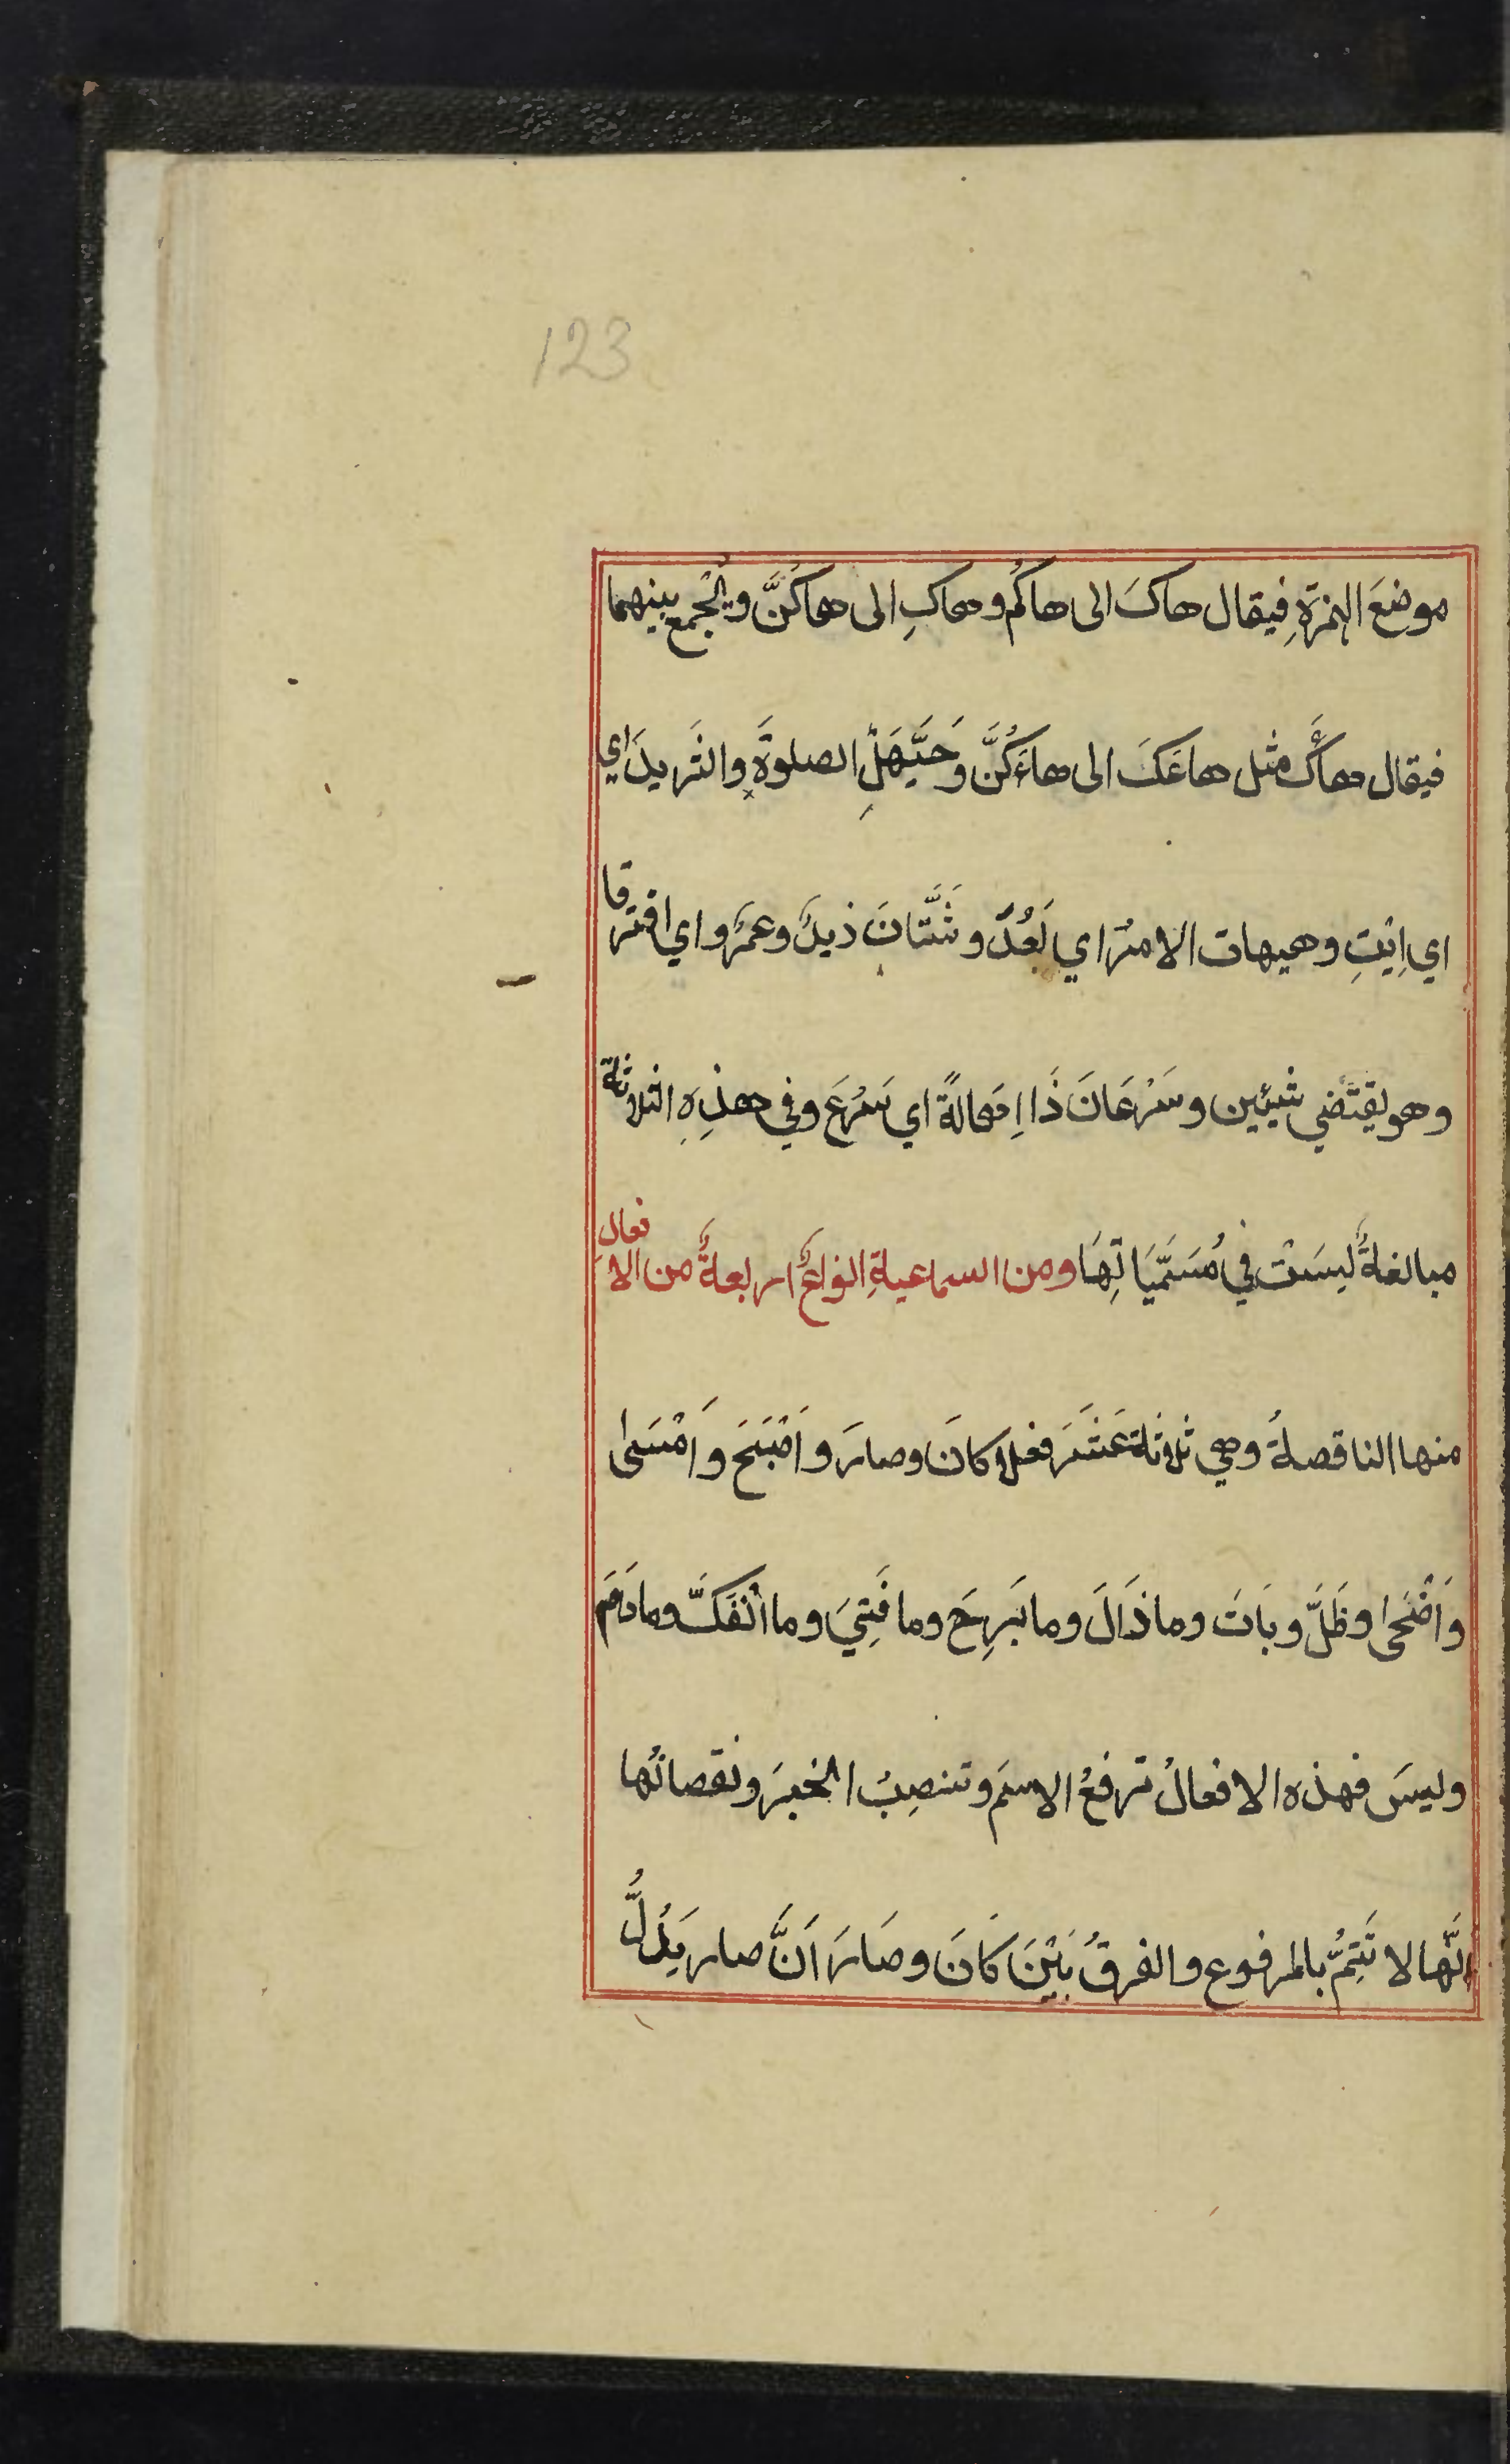 123
موضعَ الهمزةِ فيقال هاكَ الى هاكُم وهاكِ الى هاكُنَّ ويُجْمع بينهما
فيقال هاءَك مثل هاعَكَ الى هاءَكُنَّ وَحَيَّهَلِ الصلوةَ والثَريدَ اي
اي اِيْتِ وهيهات الامرُ اي بَعُدَ وشَتَّانَ ذيدٌ وعمرٌو اي افترقا
وهو يقتَضي شيئين وسَرْعَانَ ذَا اِهَالَةً اي سَرُعَ وفي هذِهِ الثلاثة
مبالغةٌ ليسَتْ في مُسَمَّيَاتِهَا ومن السماعيةِ انواعٌ اربعةٌ من الافعال
منها الناقصةُ وهي ثلاثة عَشَرَ فعلا كانَ وصارَ واَصْبَحَ واَمْسَىٰ
واَضْحَىٰ وظَلَّ وبَاتَ وما ذَالَ وما بَرِحَ وما فَتِيَ وما انْفَكَّ وما دَامَ
وليسَ فهذه الافعالُ ترفعُ الاسمَ وتنصِبُ الخبرَ ونقصانُها
انَّها لا تَتِمُّ بالمرفوع والفرقُ بَيْنَ كَانَ وصَارَ اَنَّ صار يَدُلُّ